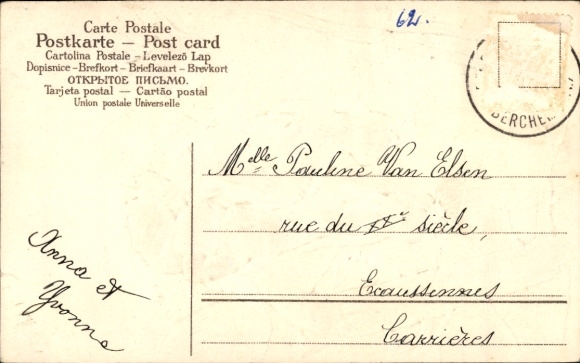 Carte Postale
Postkarte — Post card
Cartolina Postale – Levelező Lap
Dopisnice – Brefkort – Briefkaart – Brevkort
ОТКРЫТОЕ ПИСЬМО.
Tarjeta postal — Cartão postal
Union postale Universelle
62.
BERCHEM
Melle Pauline Van Elsen
rue du siècle,
Ecaussennes
Carrières
Anna et
Yvonne